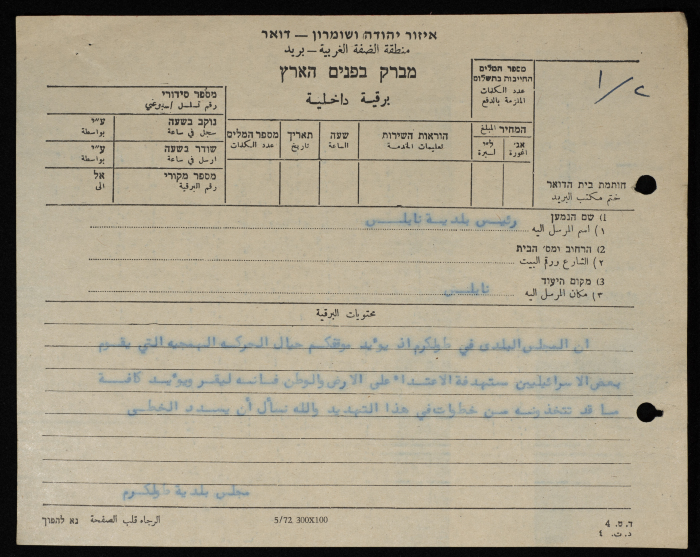 איזור יהודה ושומרון – דואר
منطقة الضفة الغربية – بريد
מברק בפנים הארץ
برقية داخلية
מספר המלים
החייבות בתשלום
عدد الكلمات
الملزمة بالدفع
1/2
מספר סידורי
رقم تسلسل اسبوعي
נוקב בשעה ע״י
سجل في ساعة بواسطة
שודר בשעה ע״י
ارسل في ساعة بواسطة
מספר מקורי אל
رقم البرقية الى
מספר המלים תאריך שעה הוראות השירות המחיר המבלغ
عدد الكلمات تاريخ الساعة تعليمات الخدمة
ל״י אג׳
ليرة اغورة
חותמת בית הדואר
ختم مكتب البريد
1) שם הנמען
١) اسم المرسل اليه رئيس بلدية نابلس
2) הרחוב ומס׳ הבית
٢) الشارع ورقم البيت
3) מקום היעוד
٣) مكان المرسل اليه نابلس
محتويات البرقية
ان المجلس البلدي في طولكرم اذ يؤيد موقفكم حيال الحركة الهمجية التي يقوم
بعض الاسرائيليين مستهدفة الاعتداء على الارض والوطن فانه ليقر ويؤيد كافة
ما قد تتخذونه من خطوات في هذا التهديد والله نسأل أن يسدد الخطى
مجلس بلدية طولكرم
נא להפוך الرجاء قلب الصفحة
5/72 300X100
ד. ס. 4
د. ت. ٤